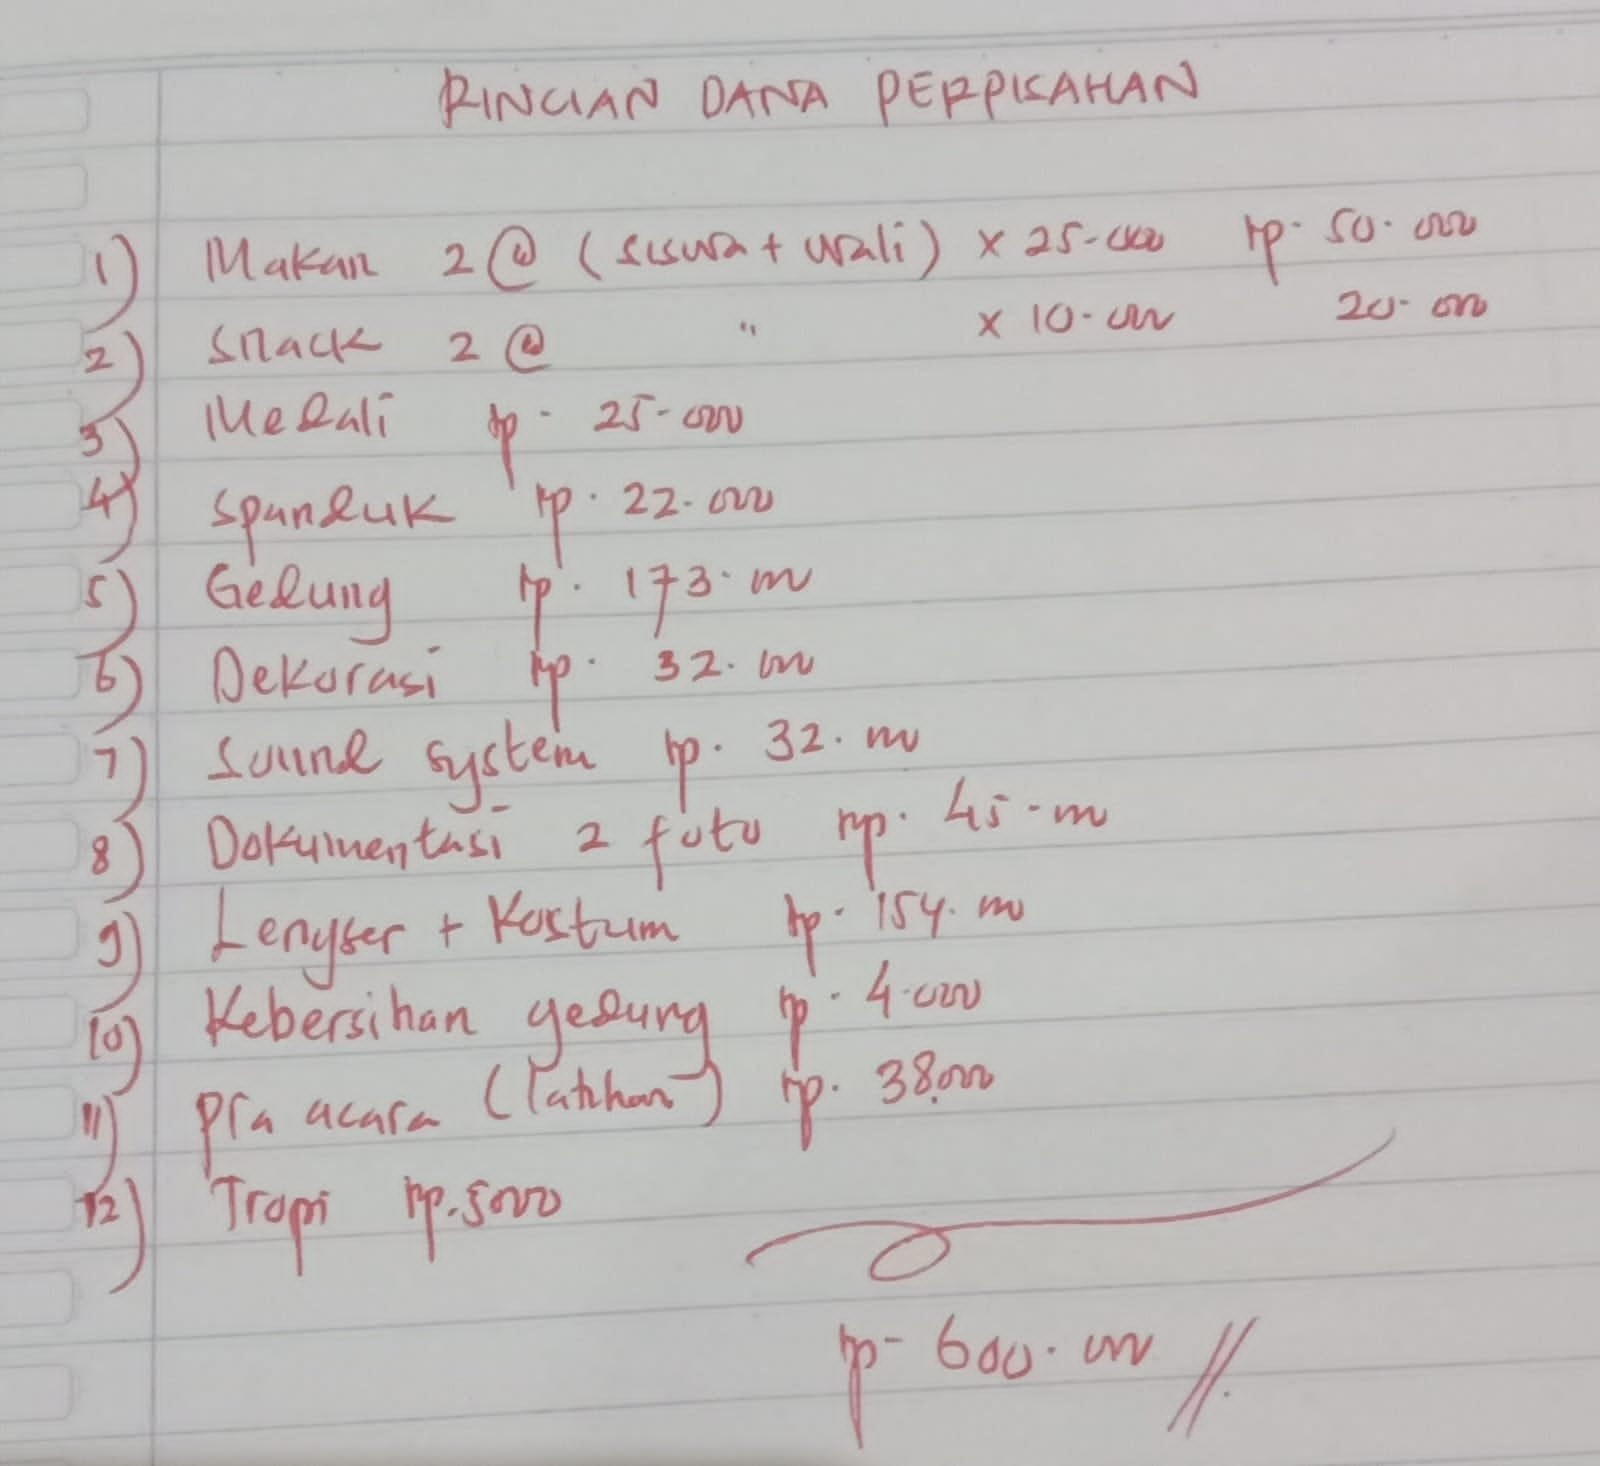 RINCIAN DANA PERPISAHAN
1) Makan 2 @ (siswa + wali) x 25.000 Rp. 50.000
2) Snack 2 @ " x 10.000 20.000
3) Medali Rp. 25.000
4) Spanduk Rp. 22.000
5) Gedung Rp. 173.000
6) Dekorasi Rp. 32.000
7) Sound system Rp. 32.000
8) Dokumentasi 2 foto Rp. 45.000
9) Lengser + Kostum Rp. 154.000
10) Kebersihan gedung Rp. 4.000
11) Pra acara (latihan) Rp. 38.000
12) Tropi Rp. 5000
Rp 600.000 //.